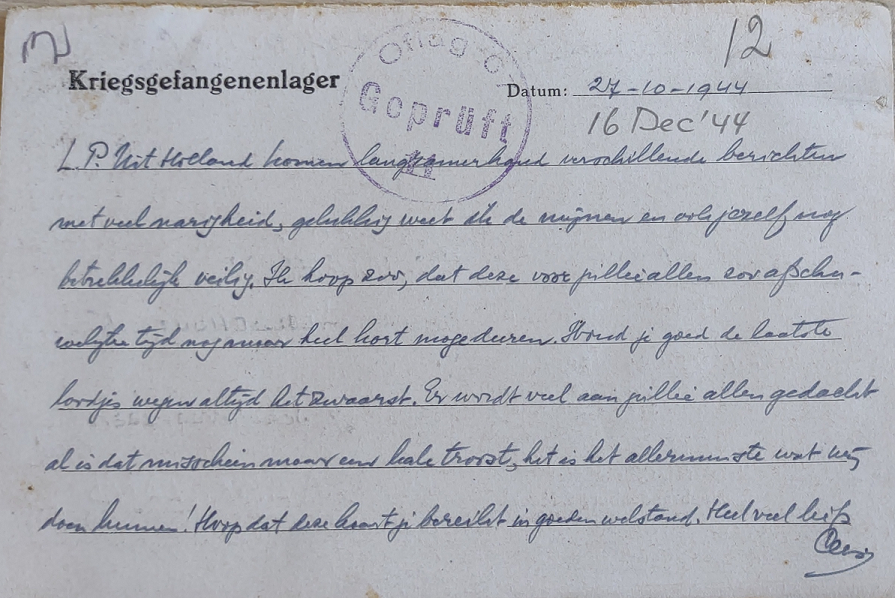 12
Oflag 6
Geprüft
Kriegsgefangenenlager
Datum: 27-10-1944
16 Dec '44
L.P. Uit Holland komen langzamerhand verschillende berichten
met veel narigheid, gelukkig weet ik de mijnen en ook jezelf nog
betrekkelijk veilig. Ik hoop zoo, dat deze voor jullie allen zoo afschu-
welijke tijd nog maar heel kort moge duren. Houd je goed de laatste
loodjes wegen altijd het zwaarst. Er wordt veel aan jullie allen gedacht
al is dat misschien maar een kale troost, het is het allerminste wat wij
doen kunnen! Hoop dat deze kaart je bereikt in goeden welstand. Heel veel liefs
Cees